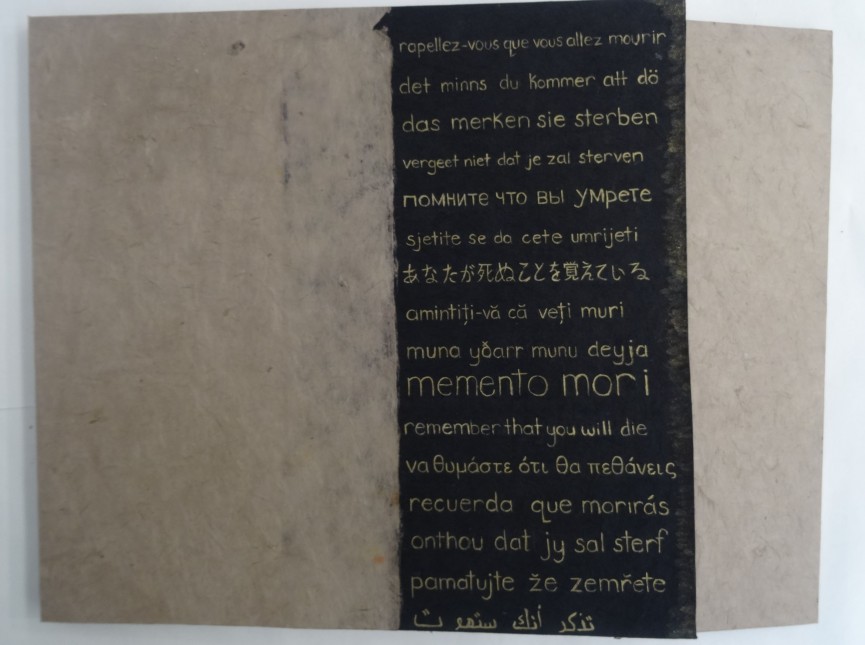 rapellez-vous que vous allez mourir
det minns du kommer att dö
das merken sie sterben
vergeet niet dat je zal sterven
помните что вы умрете
sjetite se da cete umrijeti
あなたが死ぬことを覚えている
amintiți-vă că veți muri
muna yðarr munu deyja
memento mori
remember that you will die
να θυμάστε ότι θα πεθάνεις
recuerda que morirás
onthou dat jy sal sterf
pamatujte že zemřete
تذكر أنك ستموت